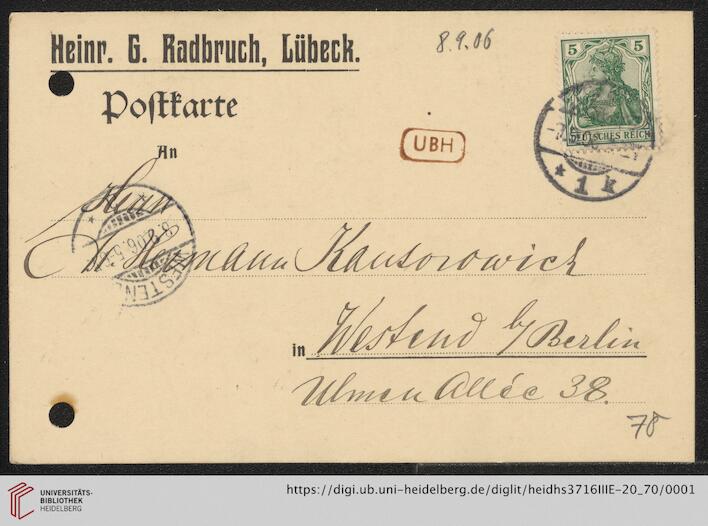 Heinr. G. Radbruch, Lübeck.
8.9.06
5 5
DEUTSCHES REICH
Postkarte
UBH
An
* 1 k
Herrn
Dr. Hermann Kantorowicz
8.9.06.
WESTEND
in Westend b/Berlin
Ulmen Allée 38.
78
UNIVERSITÄTS-
BIBLIOTHEK
HEIDELBERG
https://digi.ub.uni-heidelberg.de/diglit/heidhs3716IIIE-20_70/0001